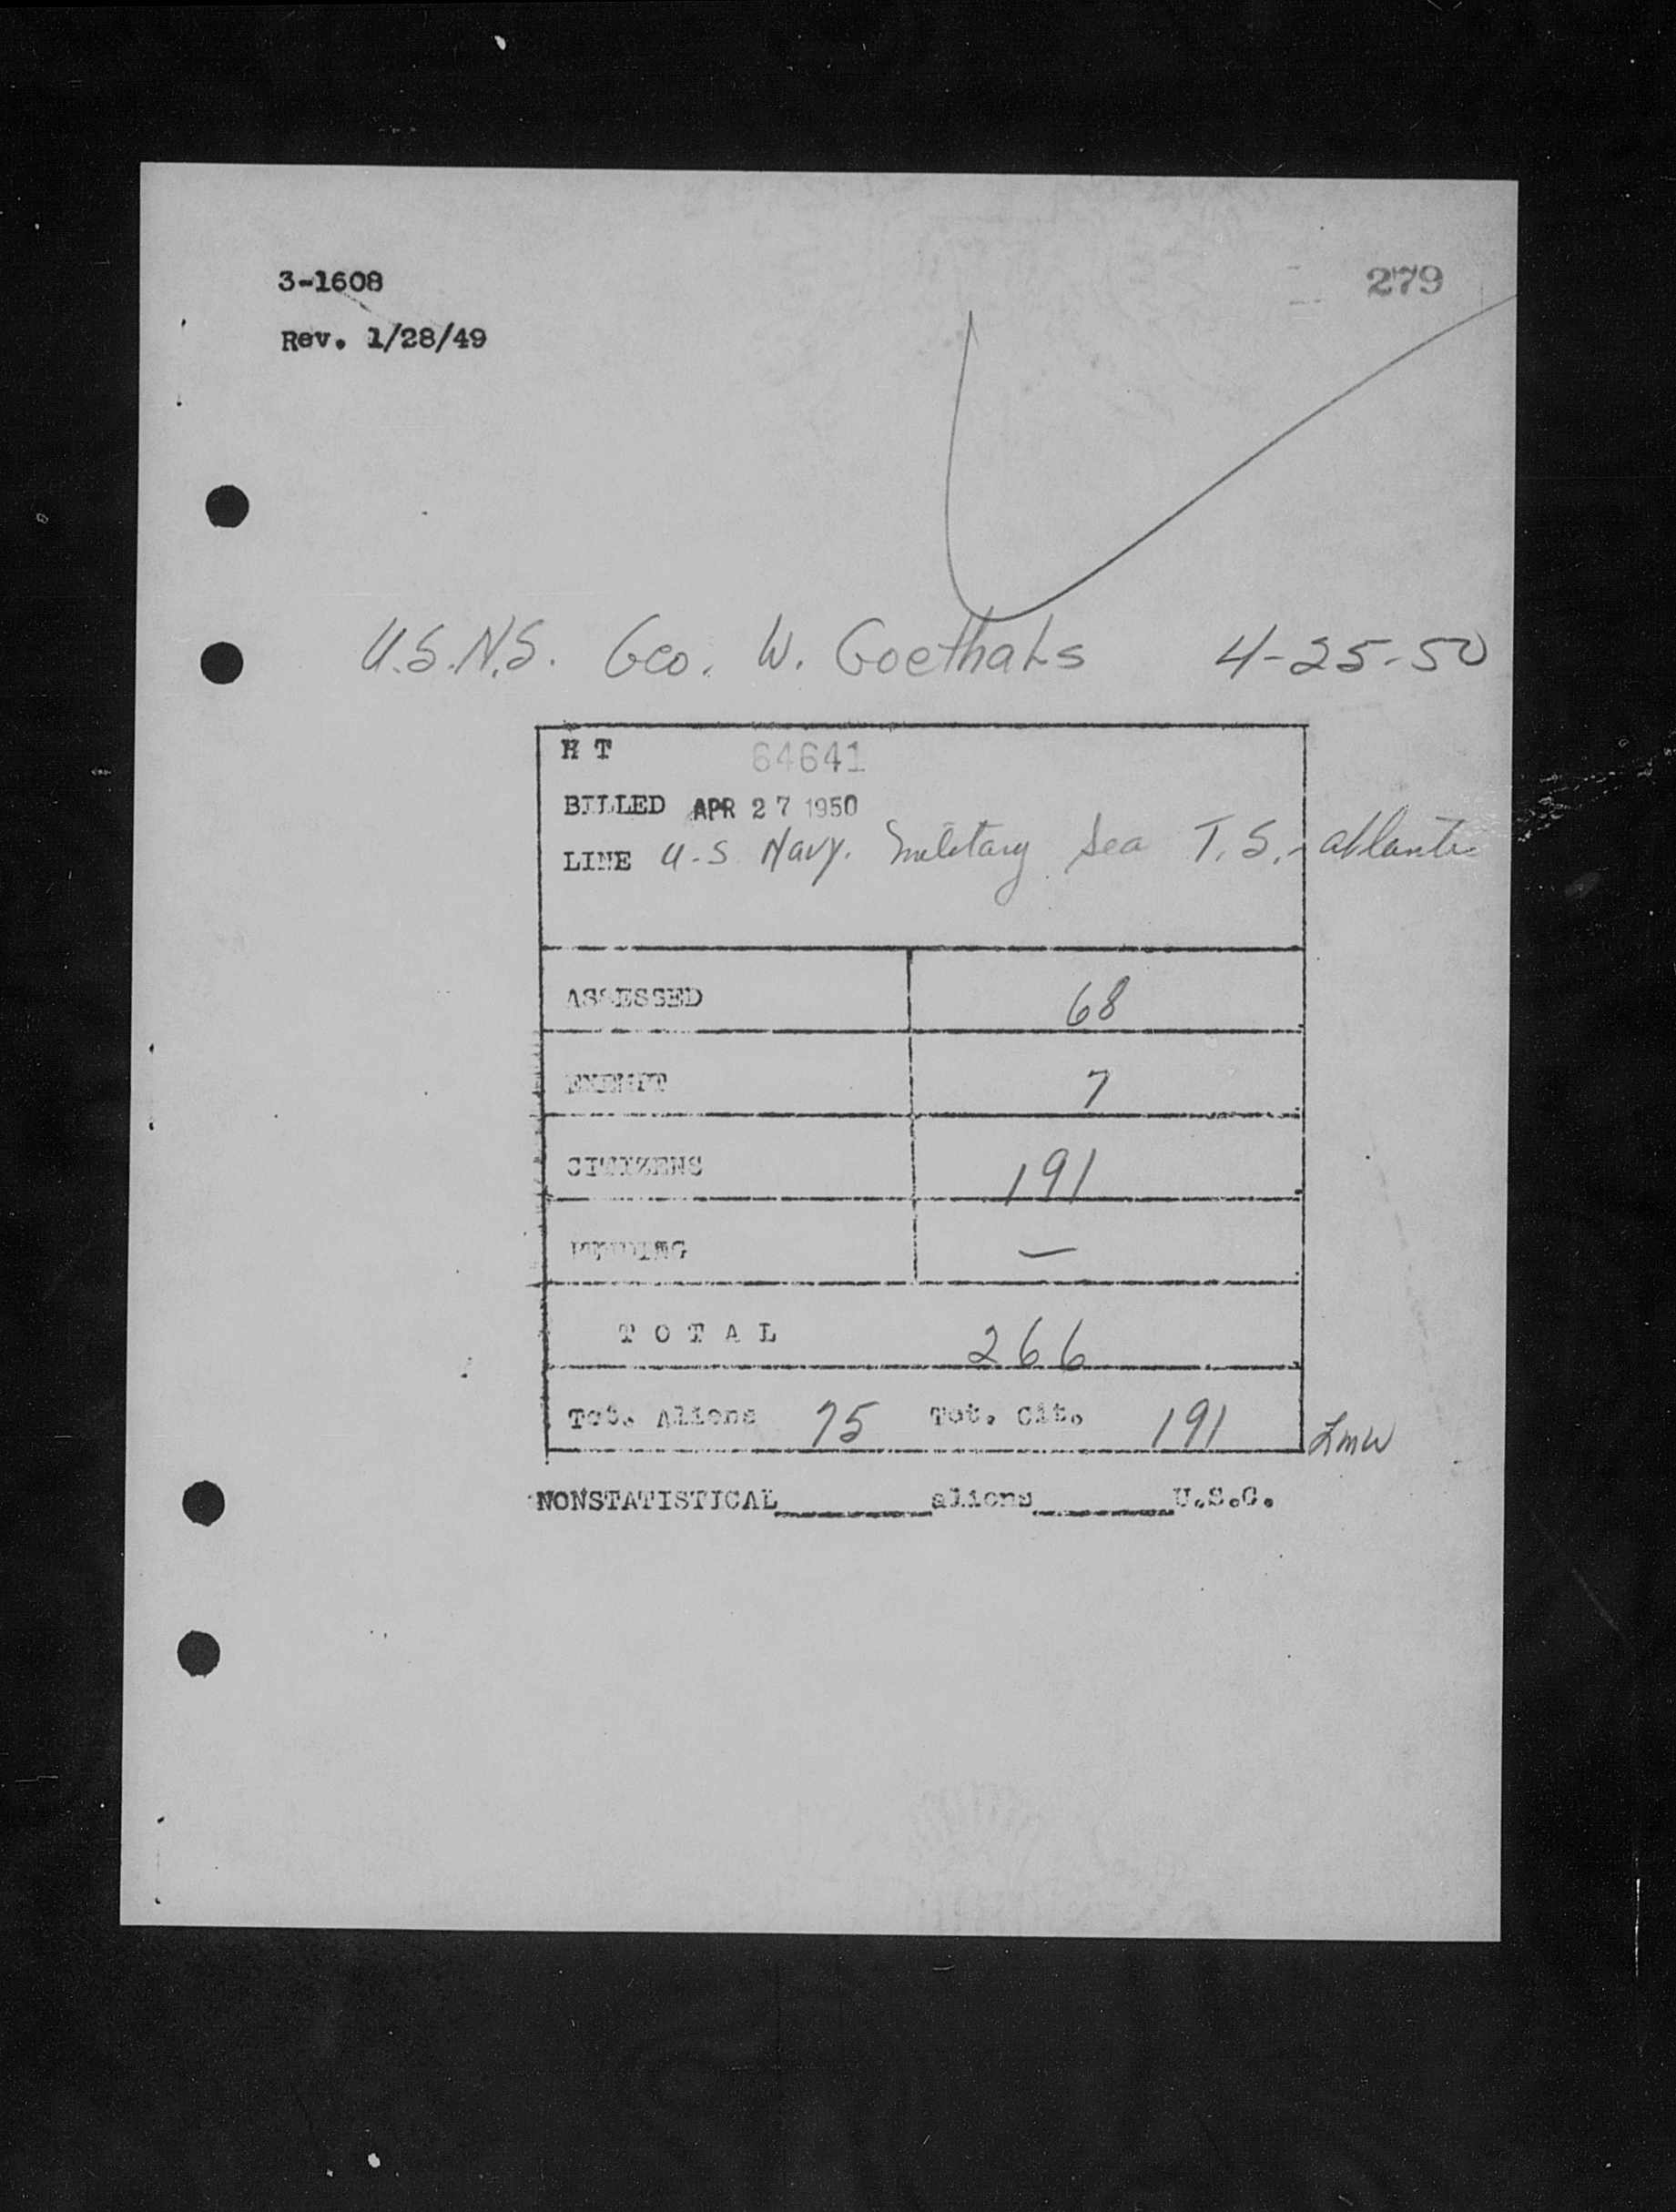 3-1608
279
Rev. 1/28/49
U.S.N.S. Geo. W. Goethals 4-25-50
H T 64641
BILLED APR 27 1950
LINE U.S Navy. Military Sea T.S. - Atlantic
ASSESSED 68
EXEMPT 7
CITIZENS 191
PENDING —
T O T A L 266
Tot. Aliens 75 Tot. Cit. 191
LMW
NONSTATISTICAL________aliens________U.S.C.